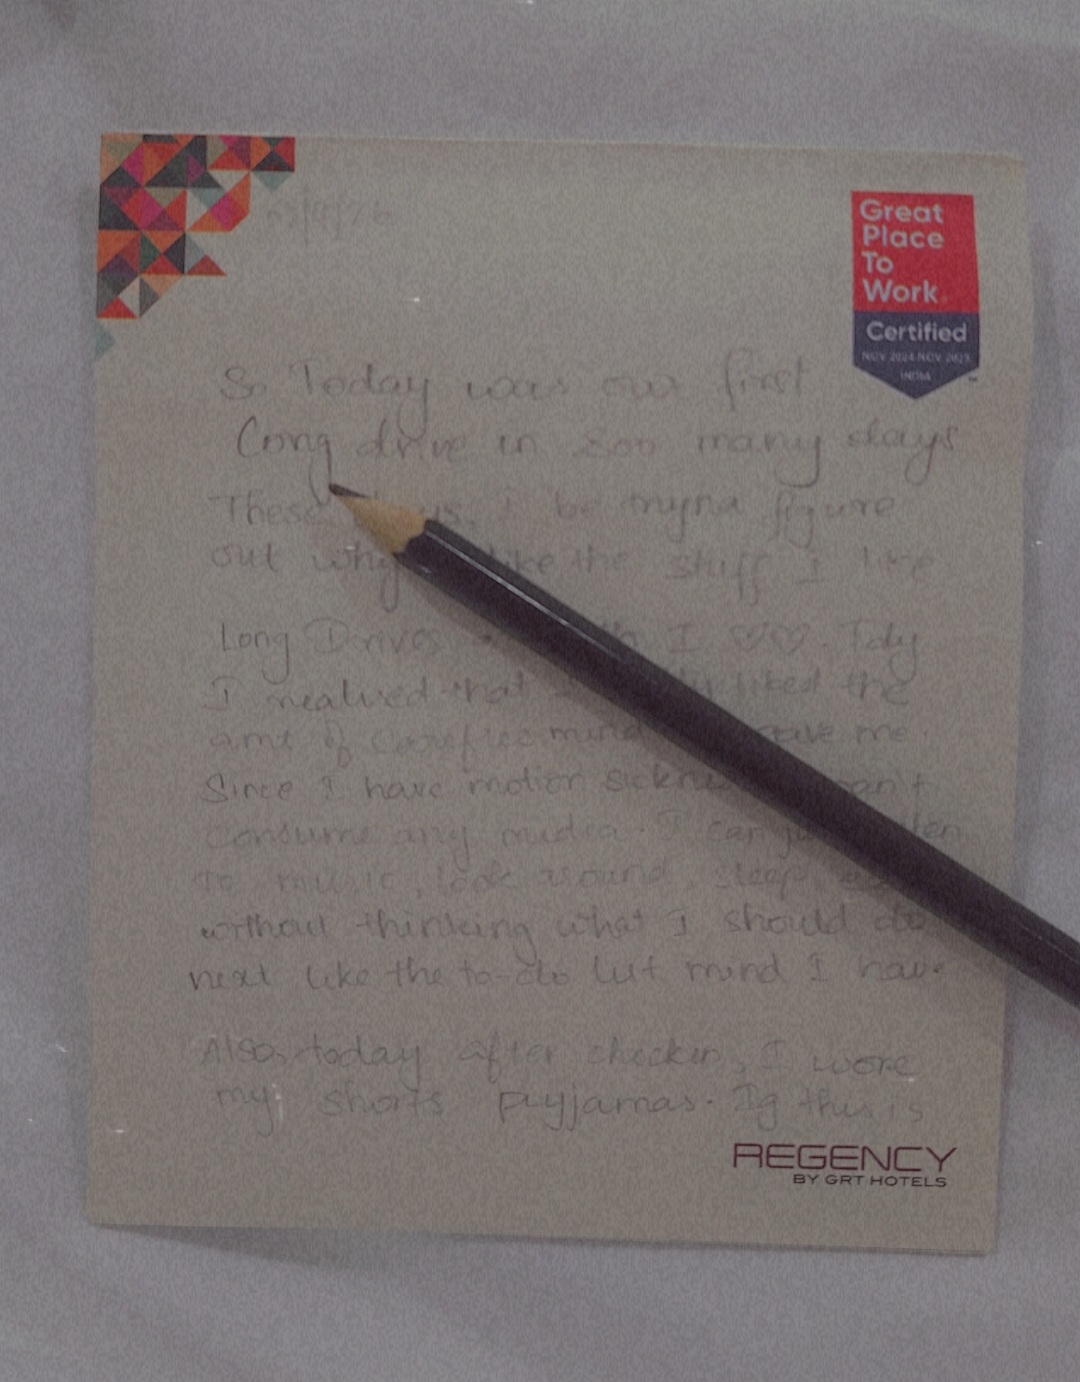 Great
Place
To
Work
Certified
NOV 2024-NOV 2025
INDIA
So Today was our first
Long drive in soo many days
These I be tryna figure
out why like the stuff I like
Long Drives I ♡♡. Tdy
I realised that liked the
amt of carefree mind gave me.
Since I have motion sickness can't
consume any media. I can
to music, look around, sleep,
without thinking what I should do
next like the to-do list mind I have
Also, today after checkin, I wore
my shorts pyjamas. Ig this is
REGENCY
BY GRT HOTELS